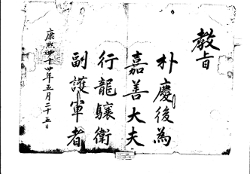 教旨
朴慶後為
嘉善大夫
行龍驤衛
副護軍者
康熙四十四年五月二十五日